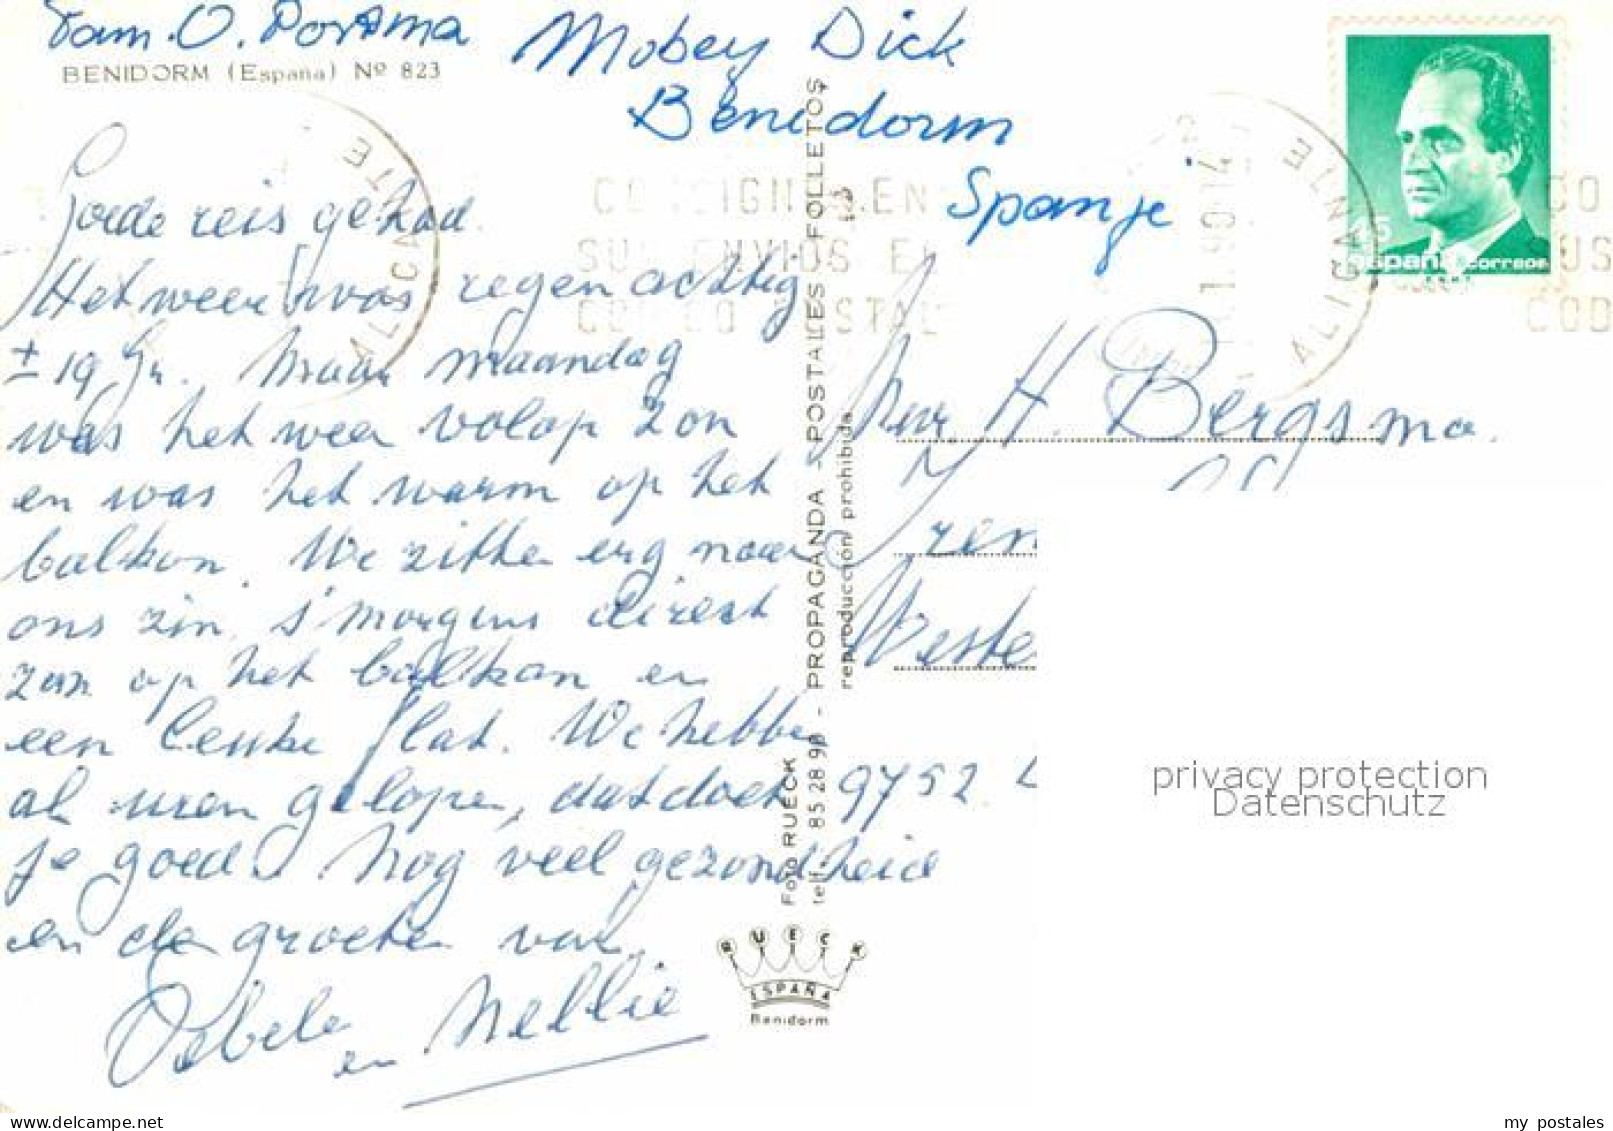 Fam. O. Postma
BENIDORM (España) Nº 823
Mobey Dick
Benidorm
Spanje
ALICANTE
CONSIGNE EN
SUS ENVIOS EL
CODIGO POSTAL
ALICANTE
CO
SUS
COD
España correos
Goede reis gehad.
Het weer was regenachtig
± 19 Gr. Maar maandag
was het weer volop zon
en was het warm op het
balkon. We zitten erg naar
ons zin. s'morgens direct
zon op het balkon en
een leuke flat. We hebbe
al uren gelopen, dat doet
je goed. Nog veel gezondheid
en de groeten van
Oebele
en Nellie
PROPAGANDA - POSTALES - FOLLETOS
reproducción prohibida
Foto RUECK
telf. 85 28 90
113
RUECK
ESPAÑA
Benidorm
Mevr H. Bergsma.
Weste
9752
privacy protection
Datenschutz
delcampe.net
my_postales